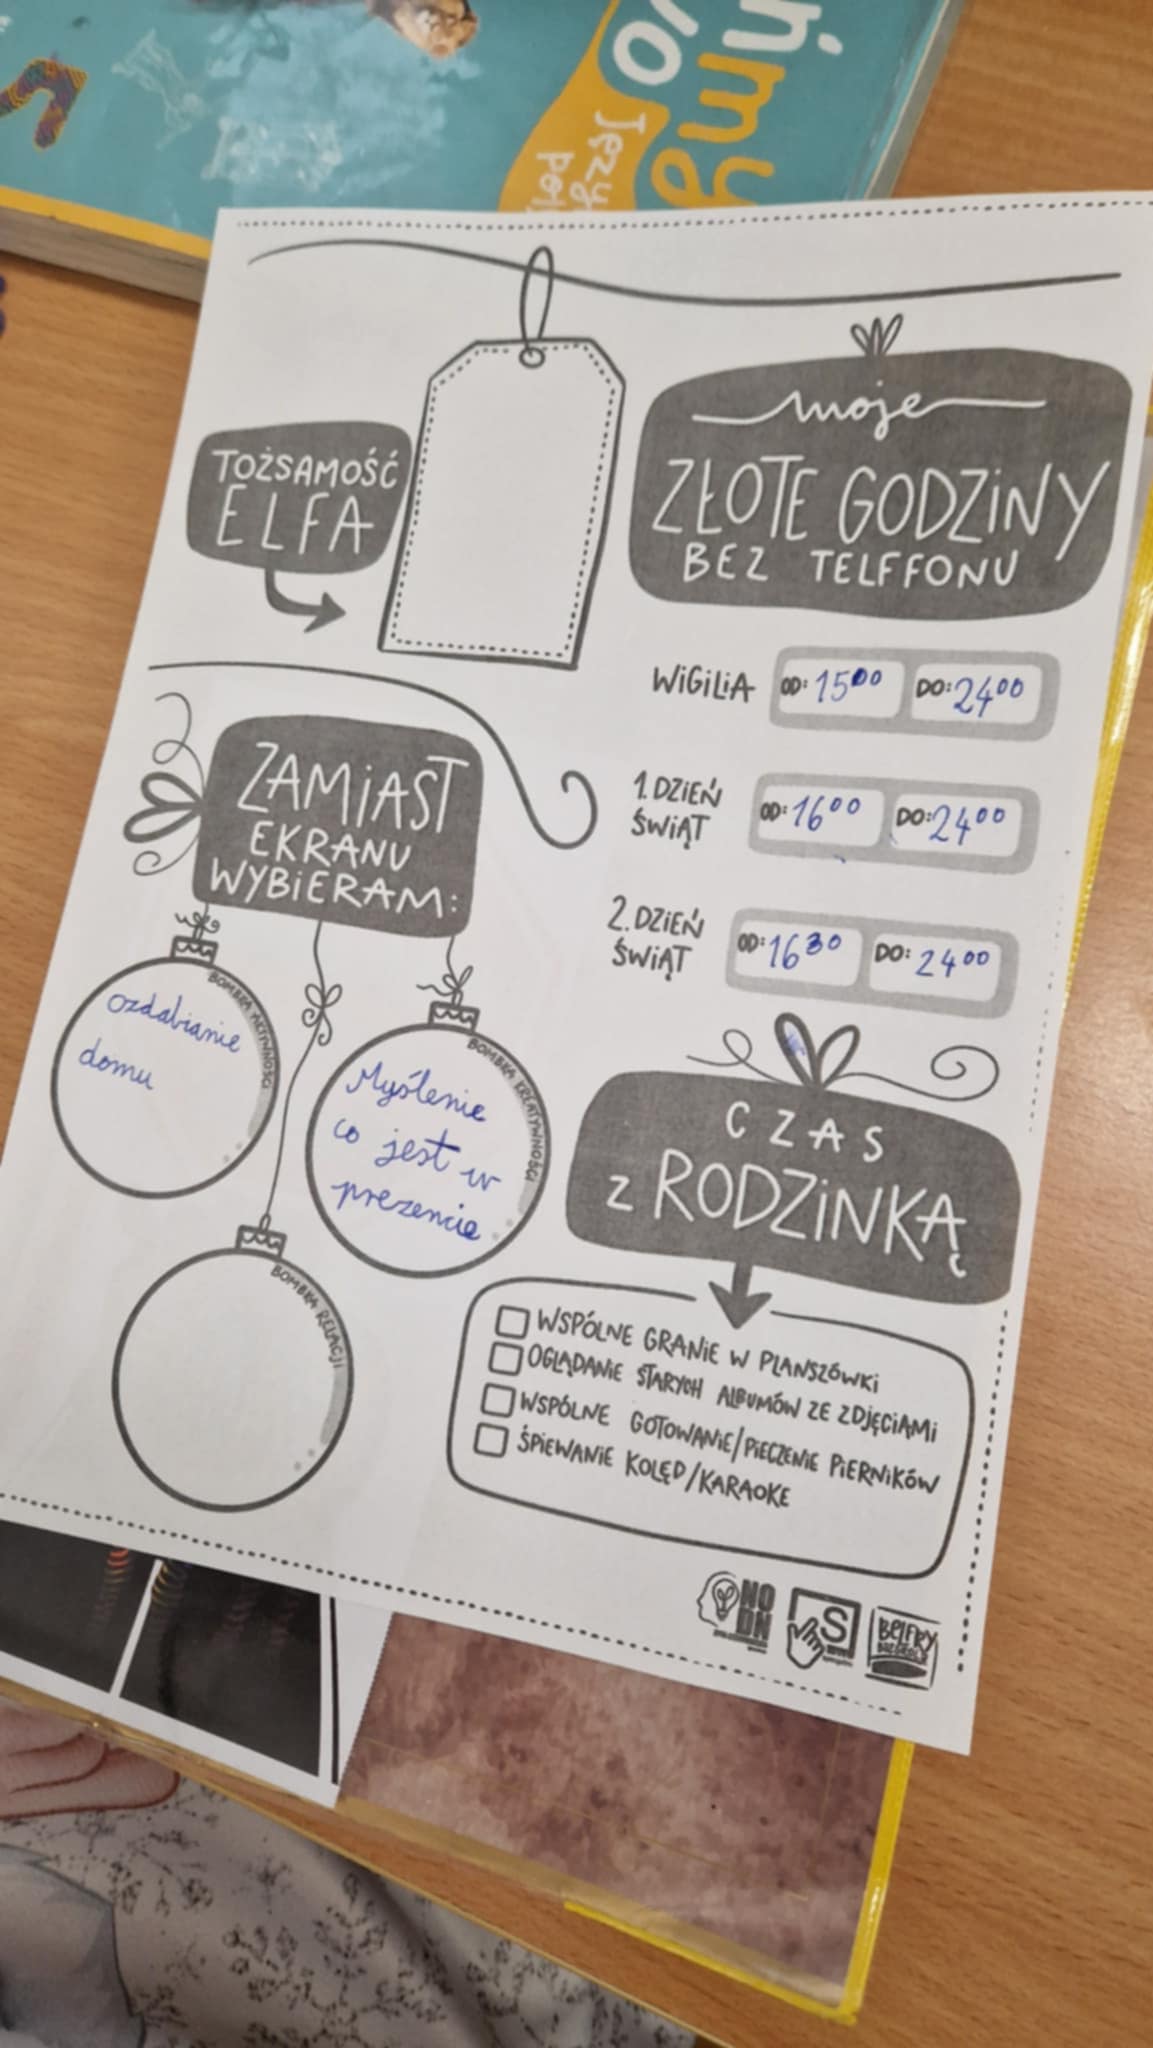 ń
my
wo
Języ
pol
TOŻSAMOŚĆ
ELFA
moje
ZŁOTE GODZINY
BEZ TELFFONU
WIGILIA OD: 15⁰⁰ DO: 24⁰⁰
1. DZIEŃ
ŚWIĄT
OD: 16⁰⁰ DO: 24⁰⁰
2. DZIEŃ
ŚWIĄT
OD: 16³⁰ DO: 24⁰⁰
ZAMIAST
EKRANU
WYBIERAM:
BOMBKA AKTYWNOŚCI
ozdabianie
domu
BOMBKA KREATYWNOŚCI
Myślenie
co jest w
prezencie
BOMBKA RELACJI
CZAS
Z RODZINKĄ
WSPÓLNE GRANIE W PLANSZÓWKI
OGLĄDANIE STARYCH ALBUMÓW ZE ZDJĘCIAMI
WSPÓLNE GOTOWANIE/PIECZENIE PIERNIKÓW
ŚPIEWANIE KOLĘD/KARAOKE
NO
DN
S
BELFRY